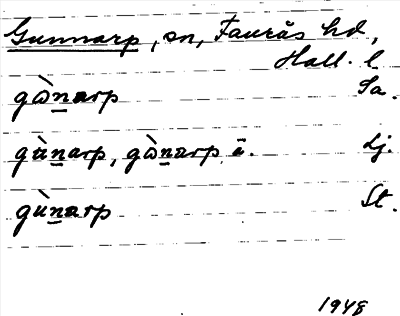 Gunnarp, sn, Faurås hd,
Hall. l
gὼn̲arp Sa.
gùn̲arp, gὼn̲arp ā. Lj.
gùn̲arp St.
1948